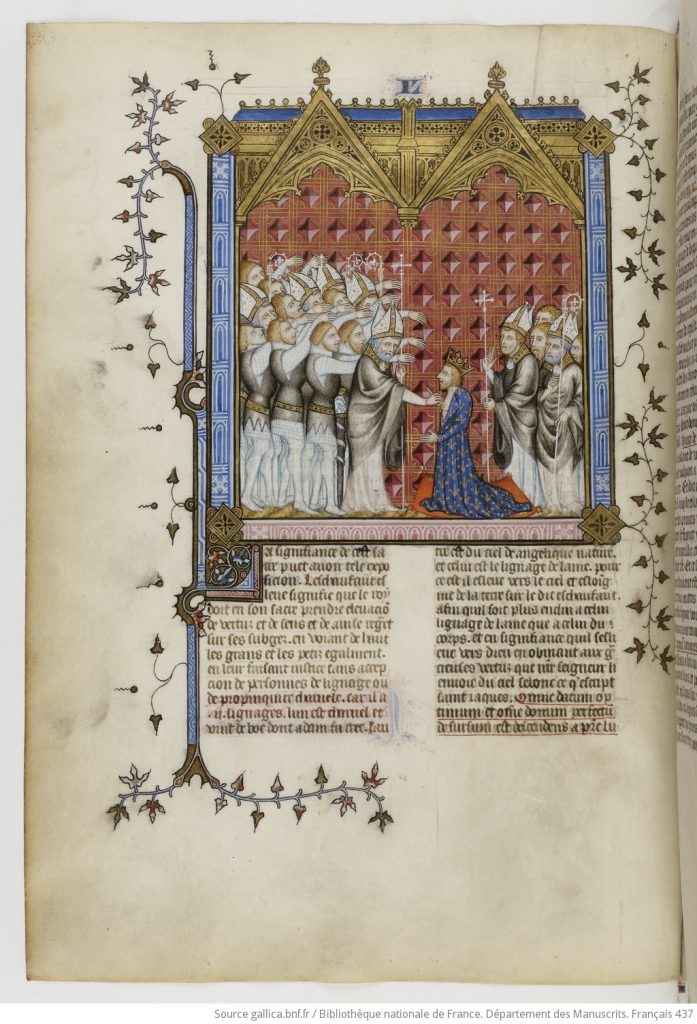 a signifiance de cest sa
cre puet avoir tele expo
sicion. Leschaufaut es
leue signifie que le roy
doit en son sacre prendre eleuacion
de vertuz et de sens et de
sur ses subgez. en de haut
les grans et les petiz egalment.
en leur faisant iustice sans accep
cion de personnes de lignage ou
de propinquite charnele. car il a
.ii. lignages. lun est charnel et
vint de boe dont adam fu cree. Lau
tre est du ciel de angelique nature.
et celui est le lignage de lame. pour
ce est il esleue vers le ciel et esloig
ne de la terre sur le dit eschaufaut.
afin quil soit plus enclin a celui
lignage de lame que a celui du
corps. et en signifiance quil sesli
eue vers dieu en obeissant aux g
cieuses vertuz que nre seigneur li
enuoie du ciel selonc ce q escript
saint iaques. Omne datum op
timum et omne donum perfectu
de sursum est descendens a pre lu
Source gallica.bnf.fr / Bibliothèque nationale de France. Département des Manuscrits. Français 437